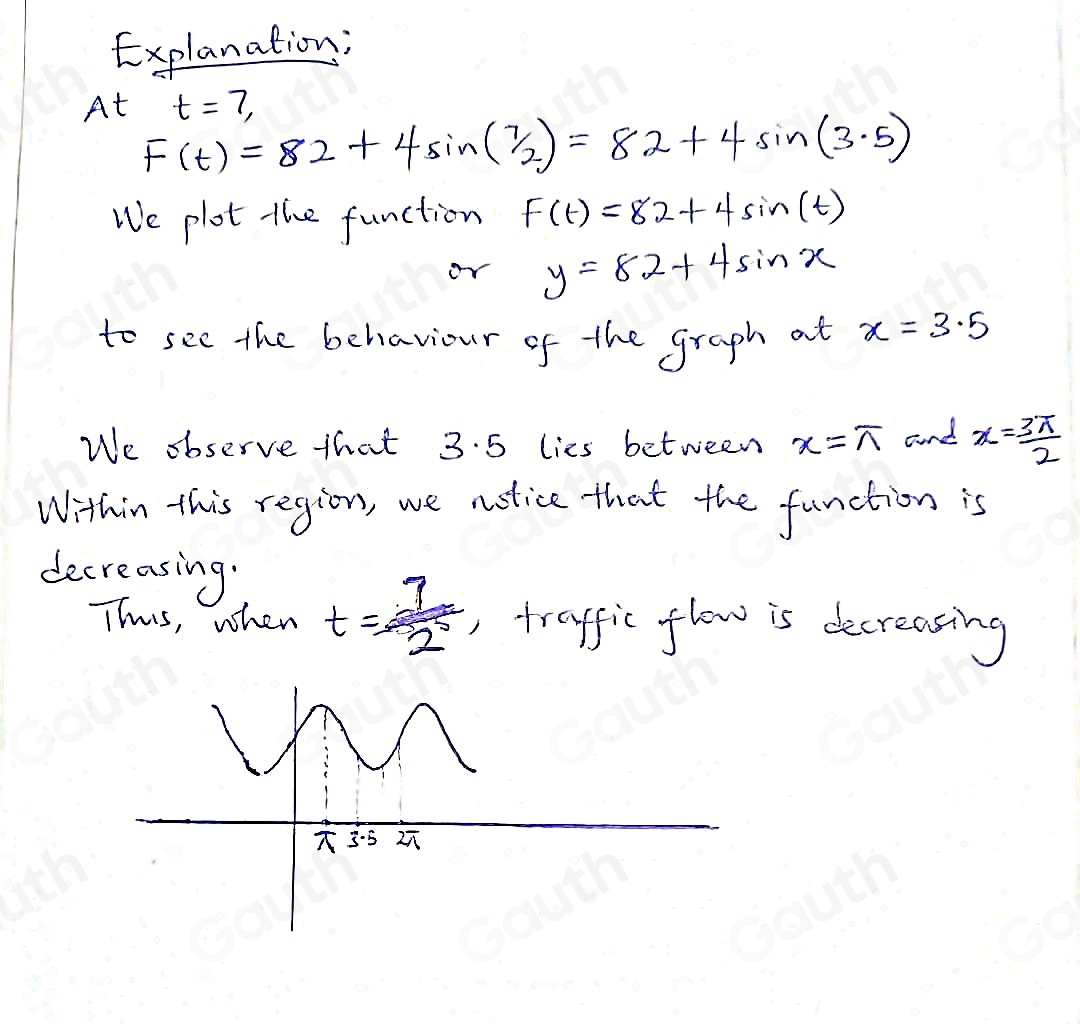 Explanation:
At t = 7,
F(t) = 82 + 4 sin(7/2) = 82 + 4 sin(3.5)
We plot the function F(t) = 82 + 4 sin(t)
or y = 82 + 4 sin x
to see the behaviour of the graph at x = 3.5
We observe that 3.5 lies between x = π and x = 3π/2
Within this region, we notice that the function is
decreasing.
Thus, when t = 7/2, traffic flow is decreasing
π 3.5 2π
Gauth